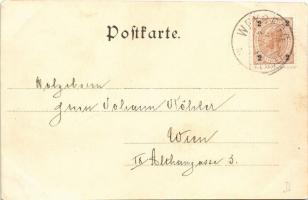 Postkarte.
W
2 2
2 2
Wolgeboren
Herrn Johann Köhler
Wien
IX Althangasse 3.